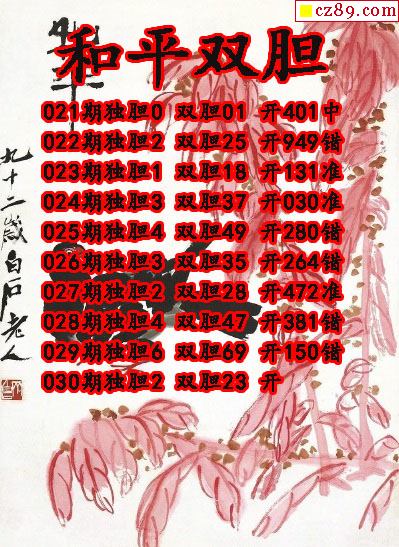 cz89.com
和平双胆
021期独胆0 双胆01 开401中
022期独胆2 双胆25 开949错
023期独胆1 双胆18 开131准
024期独胆3 双胆37 开030准
025期独胆4 双胆49 开280错
026期独胆3 双胆35 开264错
027期独胆2 双胆28 开472准
028期独胆4 双胆47 开381错
029期独胆6 双胆69 开150错
030期独胆2 双胆23 开
九十二岁白石老人